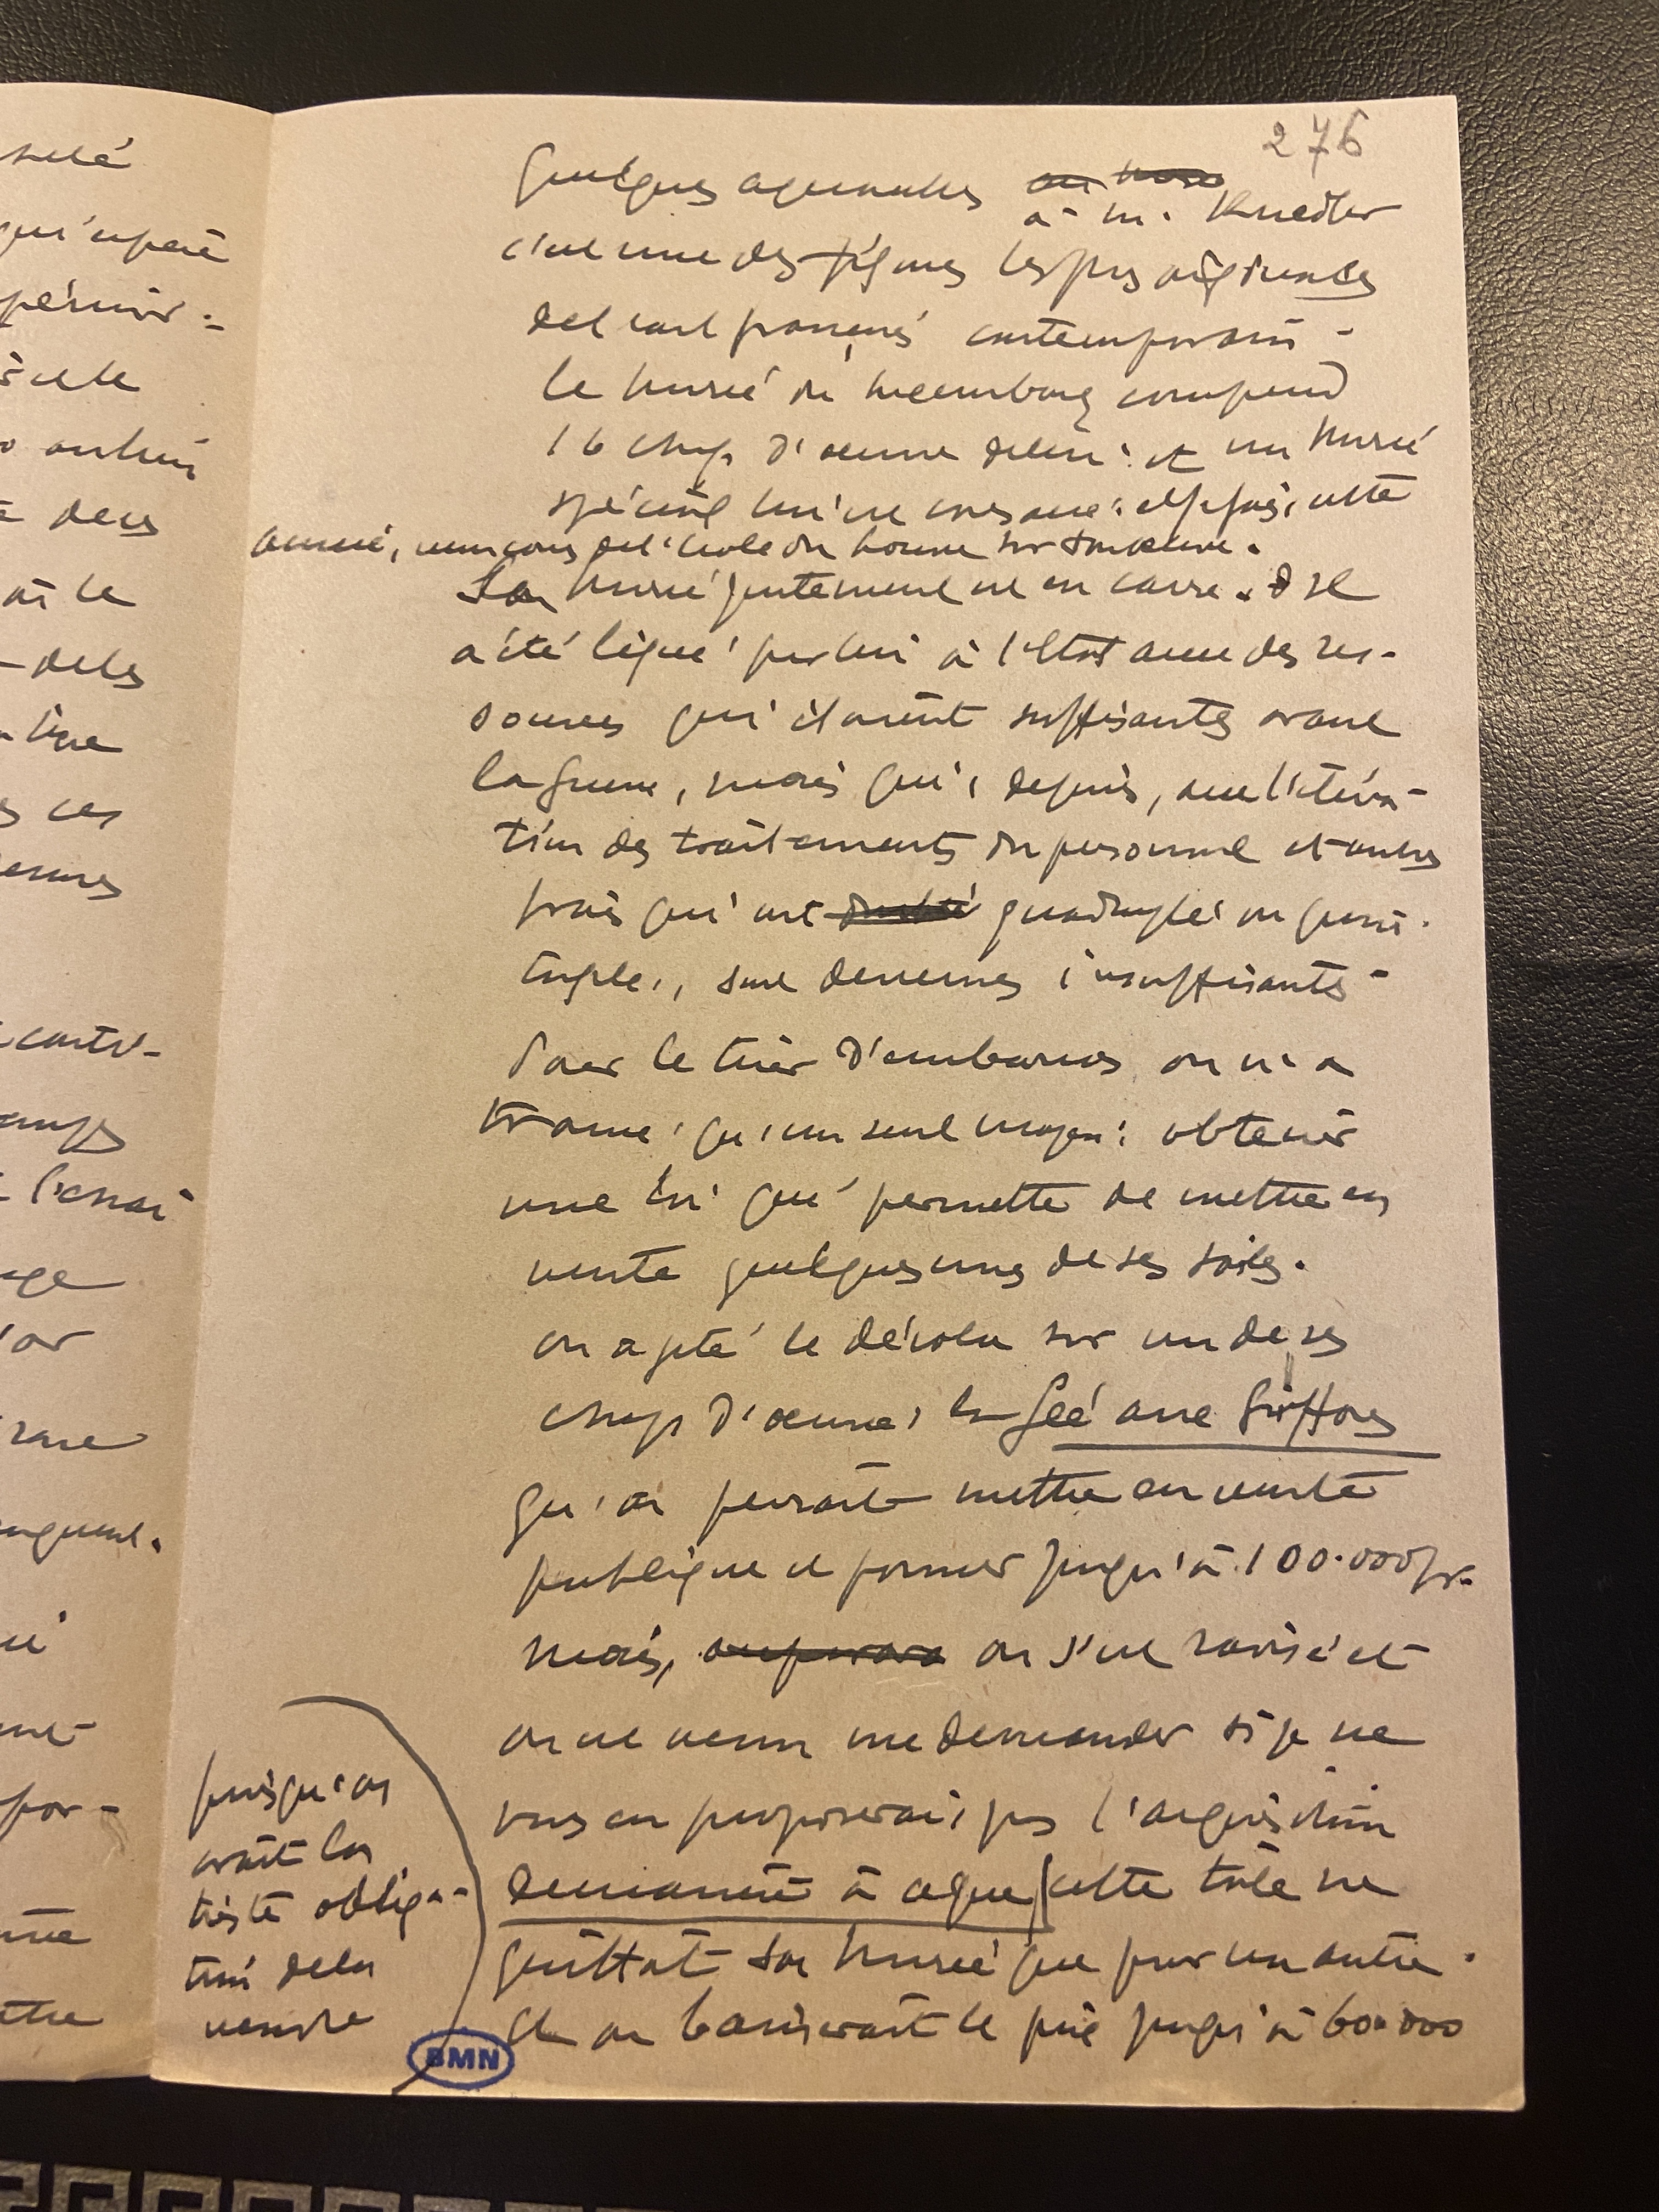 276
quelques aquarelles ~~au mus~~
à M. Knedler
c'est une des figures les plus originales
de l'art français contemporain -
le Musée du Luxembourg comprend
16 chefs d'œuvre de lui : et un Musée
spécial lui est consacré : et je fais, cette
année, un cours de l'école du Louvre sur son œuvre.
Son Musée justement est en cause. Il
a été légué par lui à l'Etat avec des res-
sources qui étaient suffisantes avant
la guerre, mais qui, depuis, avec l'éléva-
tion des traitements du personnel et autres
frais qui ont quadruplé ou quin-
tuplé, sont devenues insuffisantes -
Pour le tirer d'embarras on n'a
trouvé qu'un seul moyen : obtenir
une loi qui permette de mettre en
vente quelques unes de ses toiles.
on a jeté le dévolu sur un de ses
chefs d'œuvre, la Fée aux Griffons
qu'on pensait mettre en vente
publique et pousser jusqu'à 100.000 fr.
Mais, on s'est ravisé et
on est venu me demander si je ne
vous en proposerais pas l'acquisition
de manière à ce que cette toile ne
quittât son Musée que pour un autre.
Et on baisserait le prix jusqu'à 60.000
puisqu'on
avait la
triste obliga-
tion de la
vendre
BMN
selé
qui
cette
deux
de la
ces
contri-
l'essai
or
rare